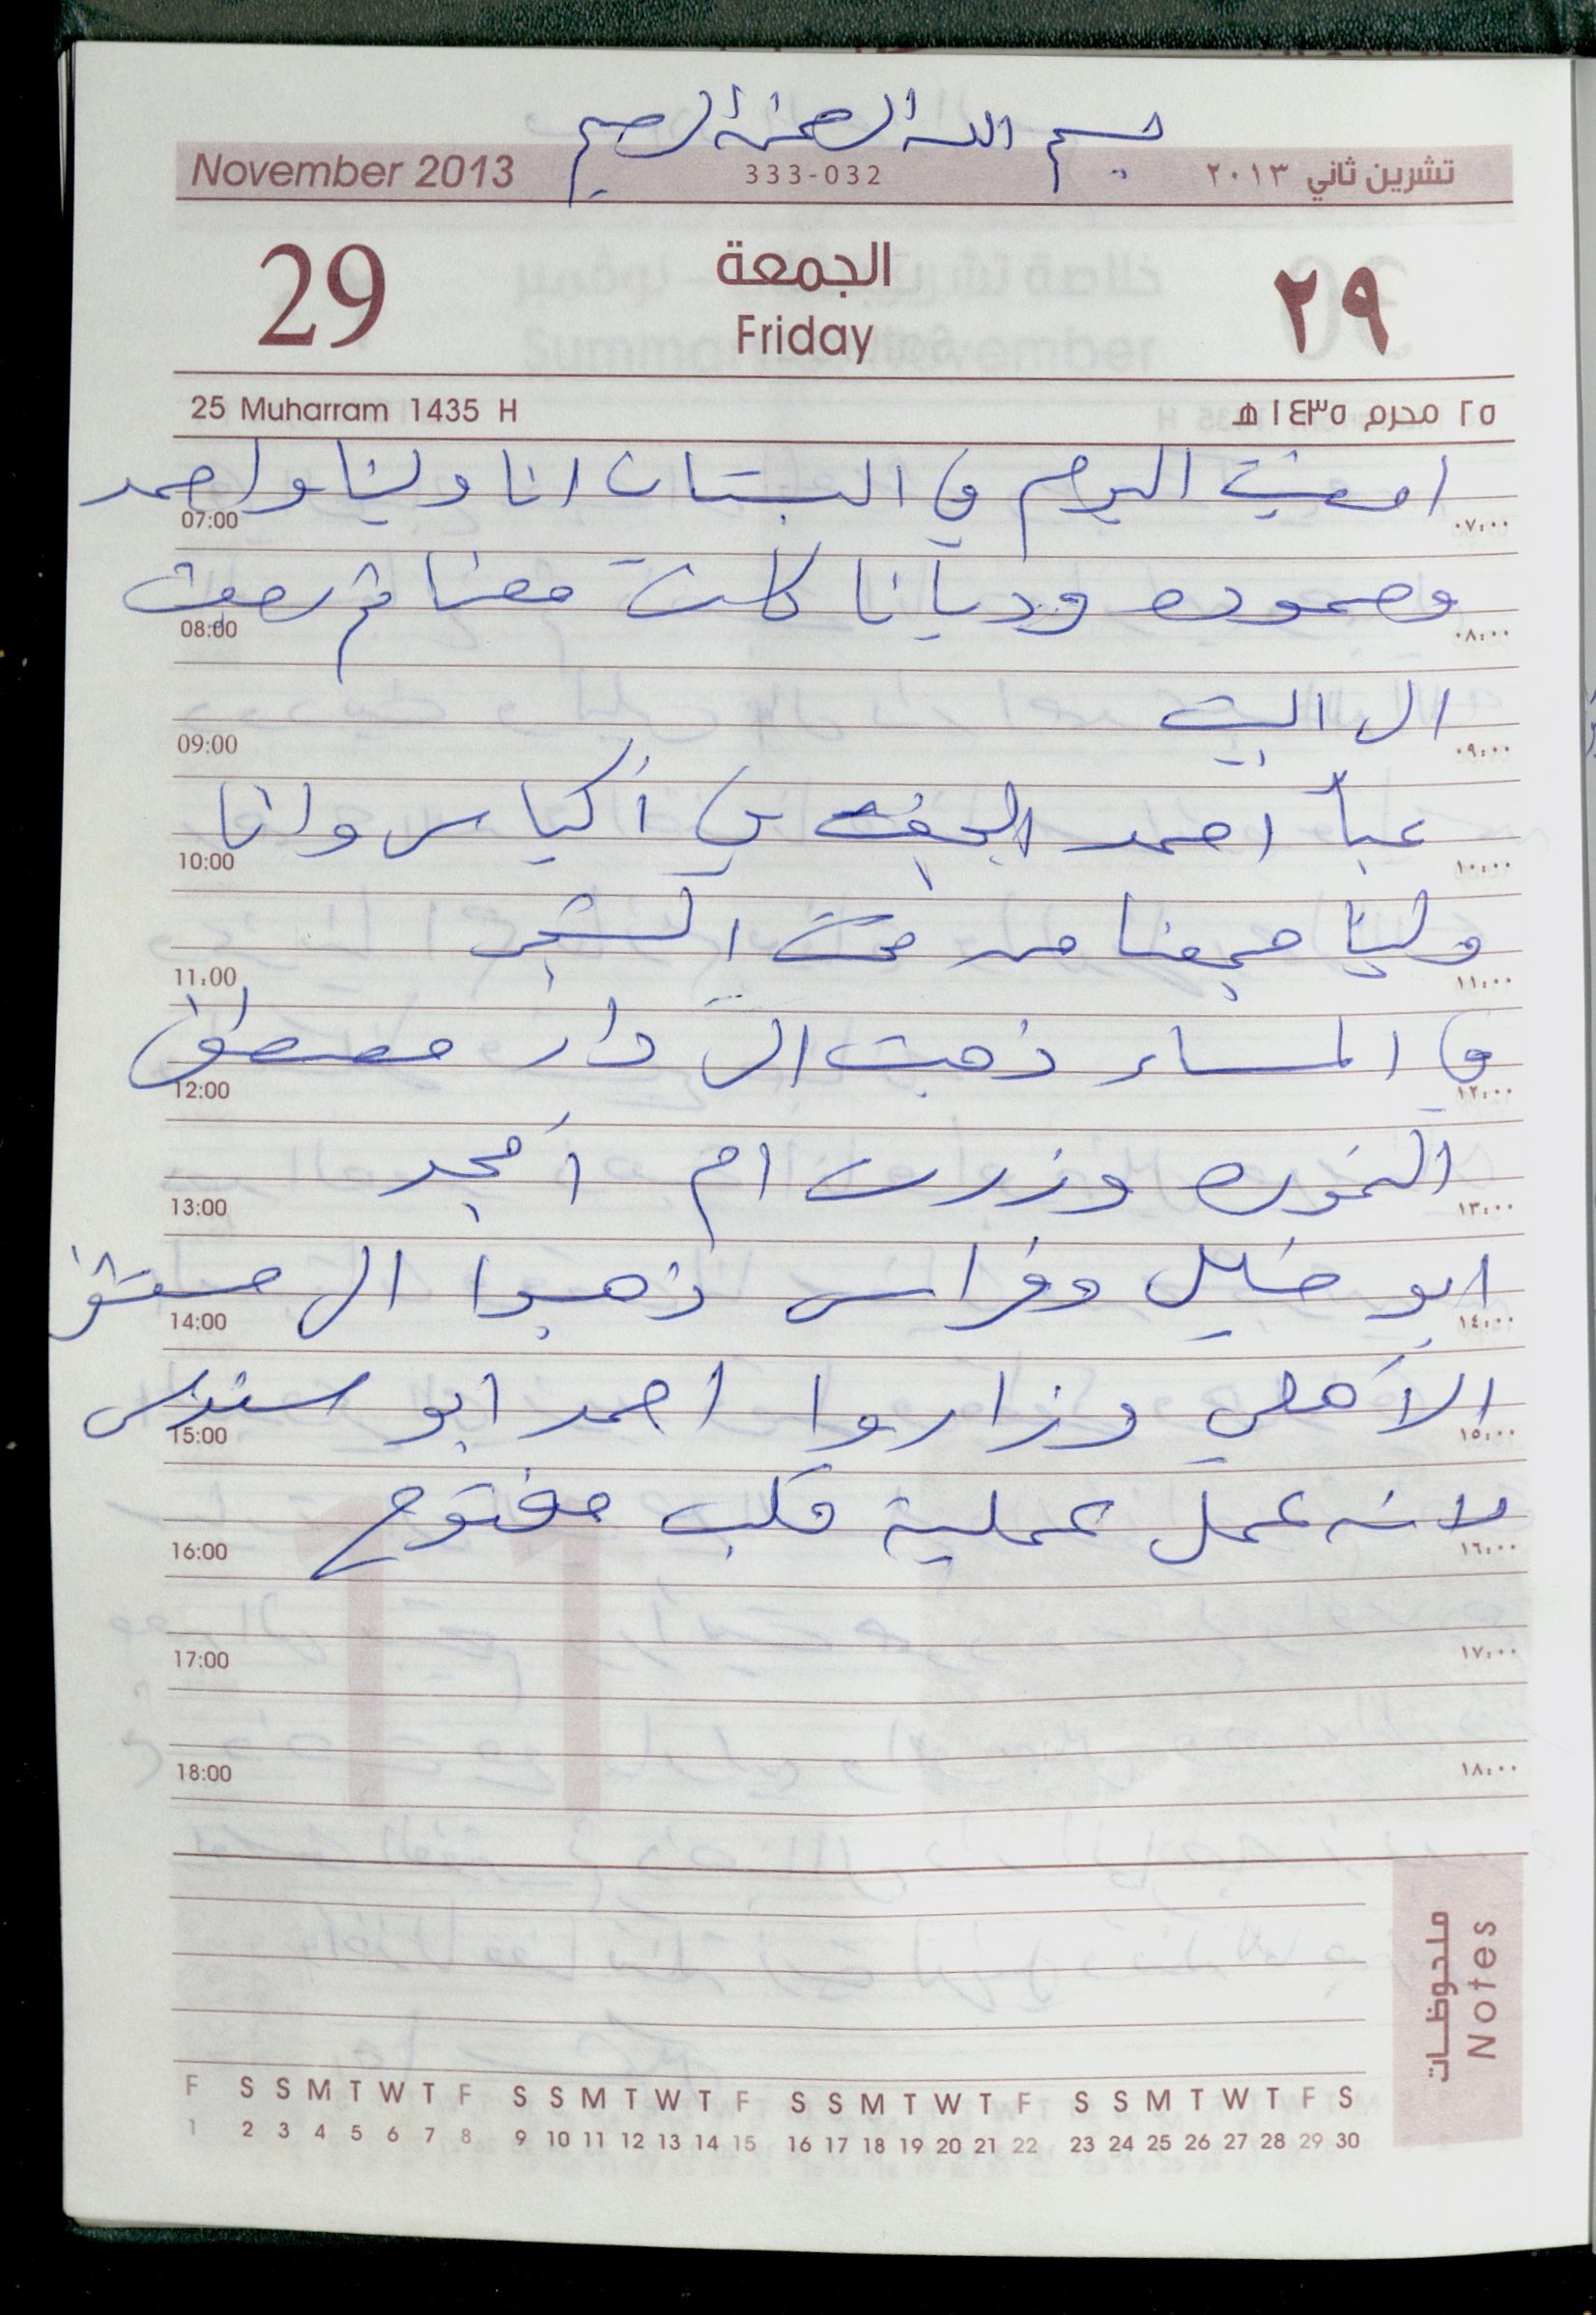 بسم الله الرحمن الرحيم
November 2013 333-032 تشرين ثاني ٢٠١٣
29 الجمعة ٢٩
Friday
25 Muharram 1435 H ٢٥ محرم ١٤٣٥ هـ
امضيت اليوم في البستان انا ولينا واحمد
07:00 ٠٧:٠٠
وحموده وديانا كانت معنا ثم رجعت
08:00 ٠٨:٠٠
الى البيت
09:00 ٠٩:٠٠
عبأ احمد الجفت في أكياس وانا
10:00 ١٠:٠٠
ولينا جمعنا من تحت الشجر
11:00 ١١:٠٠
في المساء ذهبت الى دار مصطفى
12:00 ١٢:٠٠
النموره وزرت ام أمجد
13:00 ١٣:٠٠
ابو خليل وفراس ذهبوا الى مستشفى
14:00 ١٤:٠٠
الأهلي وزاروا احمد ابو سندس
15:00 ١٥:٠٠
لانه عمل عملية قلب مفتوح
16:00 ١٦:٠٠
17:00 ١٧:٠٠
18:00 ١٨:٠٠
ملحوظات
Notes
F S S M T W T F S S M T W T F S S M T W T F S S M T W T F S
1 2 3 4 5 6 7 8 9 10 11 12 13 14 15 16 17 18 19 20 21 22 23 24 25 26 27 28 29 30